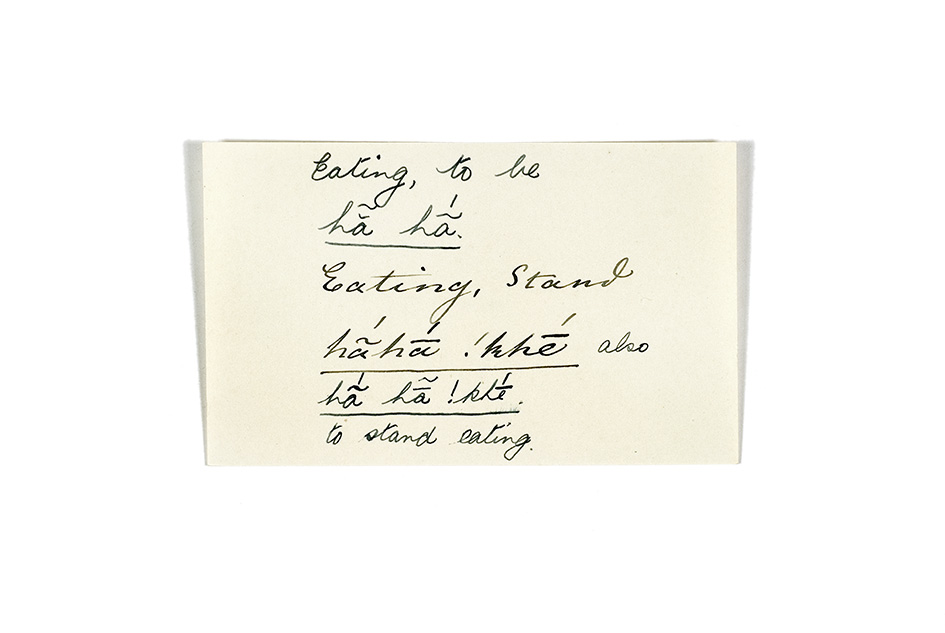 Eating, to be
hã̆ hã́.
Eating, Stand
hã́hā́ !khé̄ also
hã́ hã̄ !khé̄.
to stand eating.